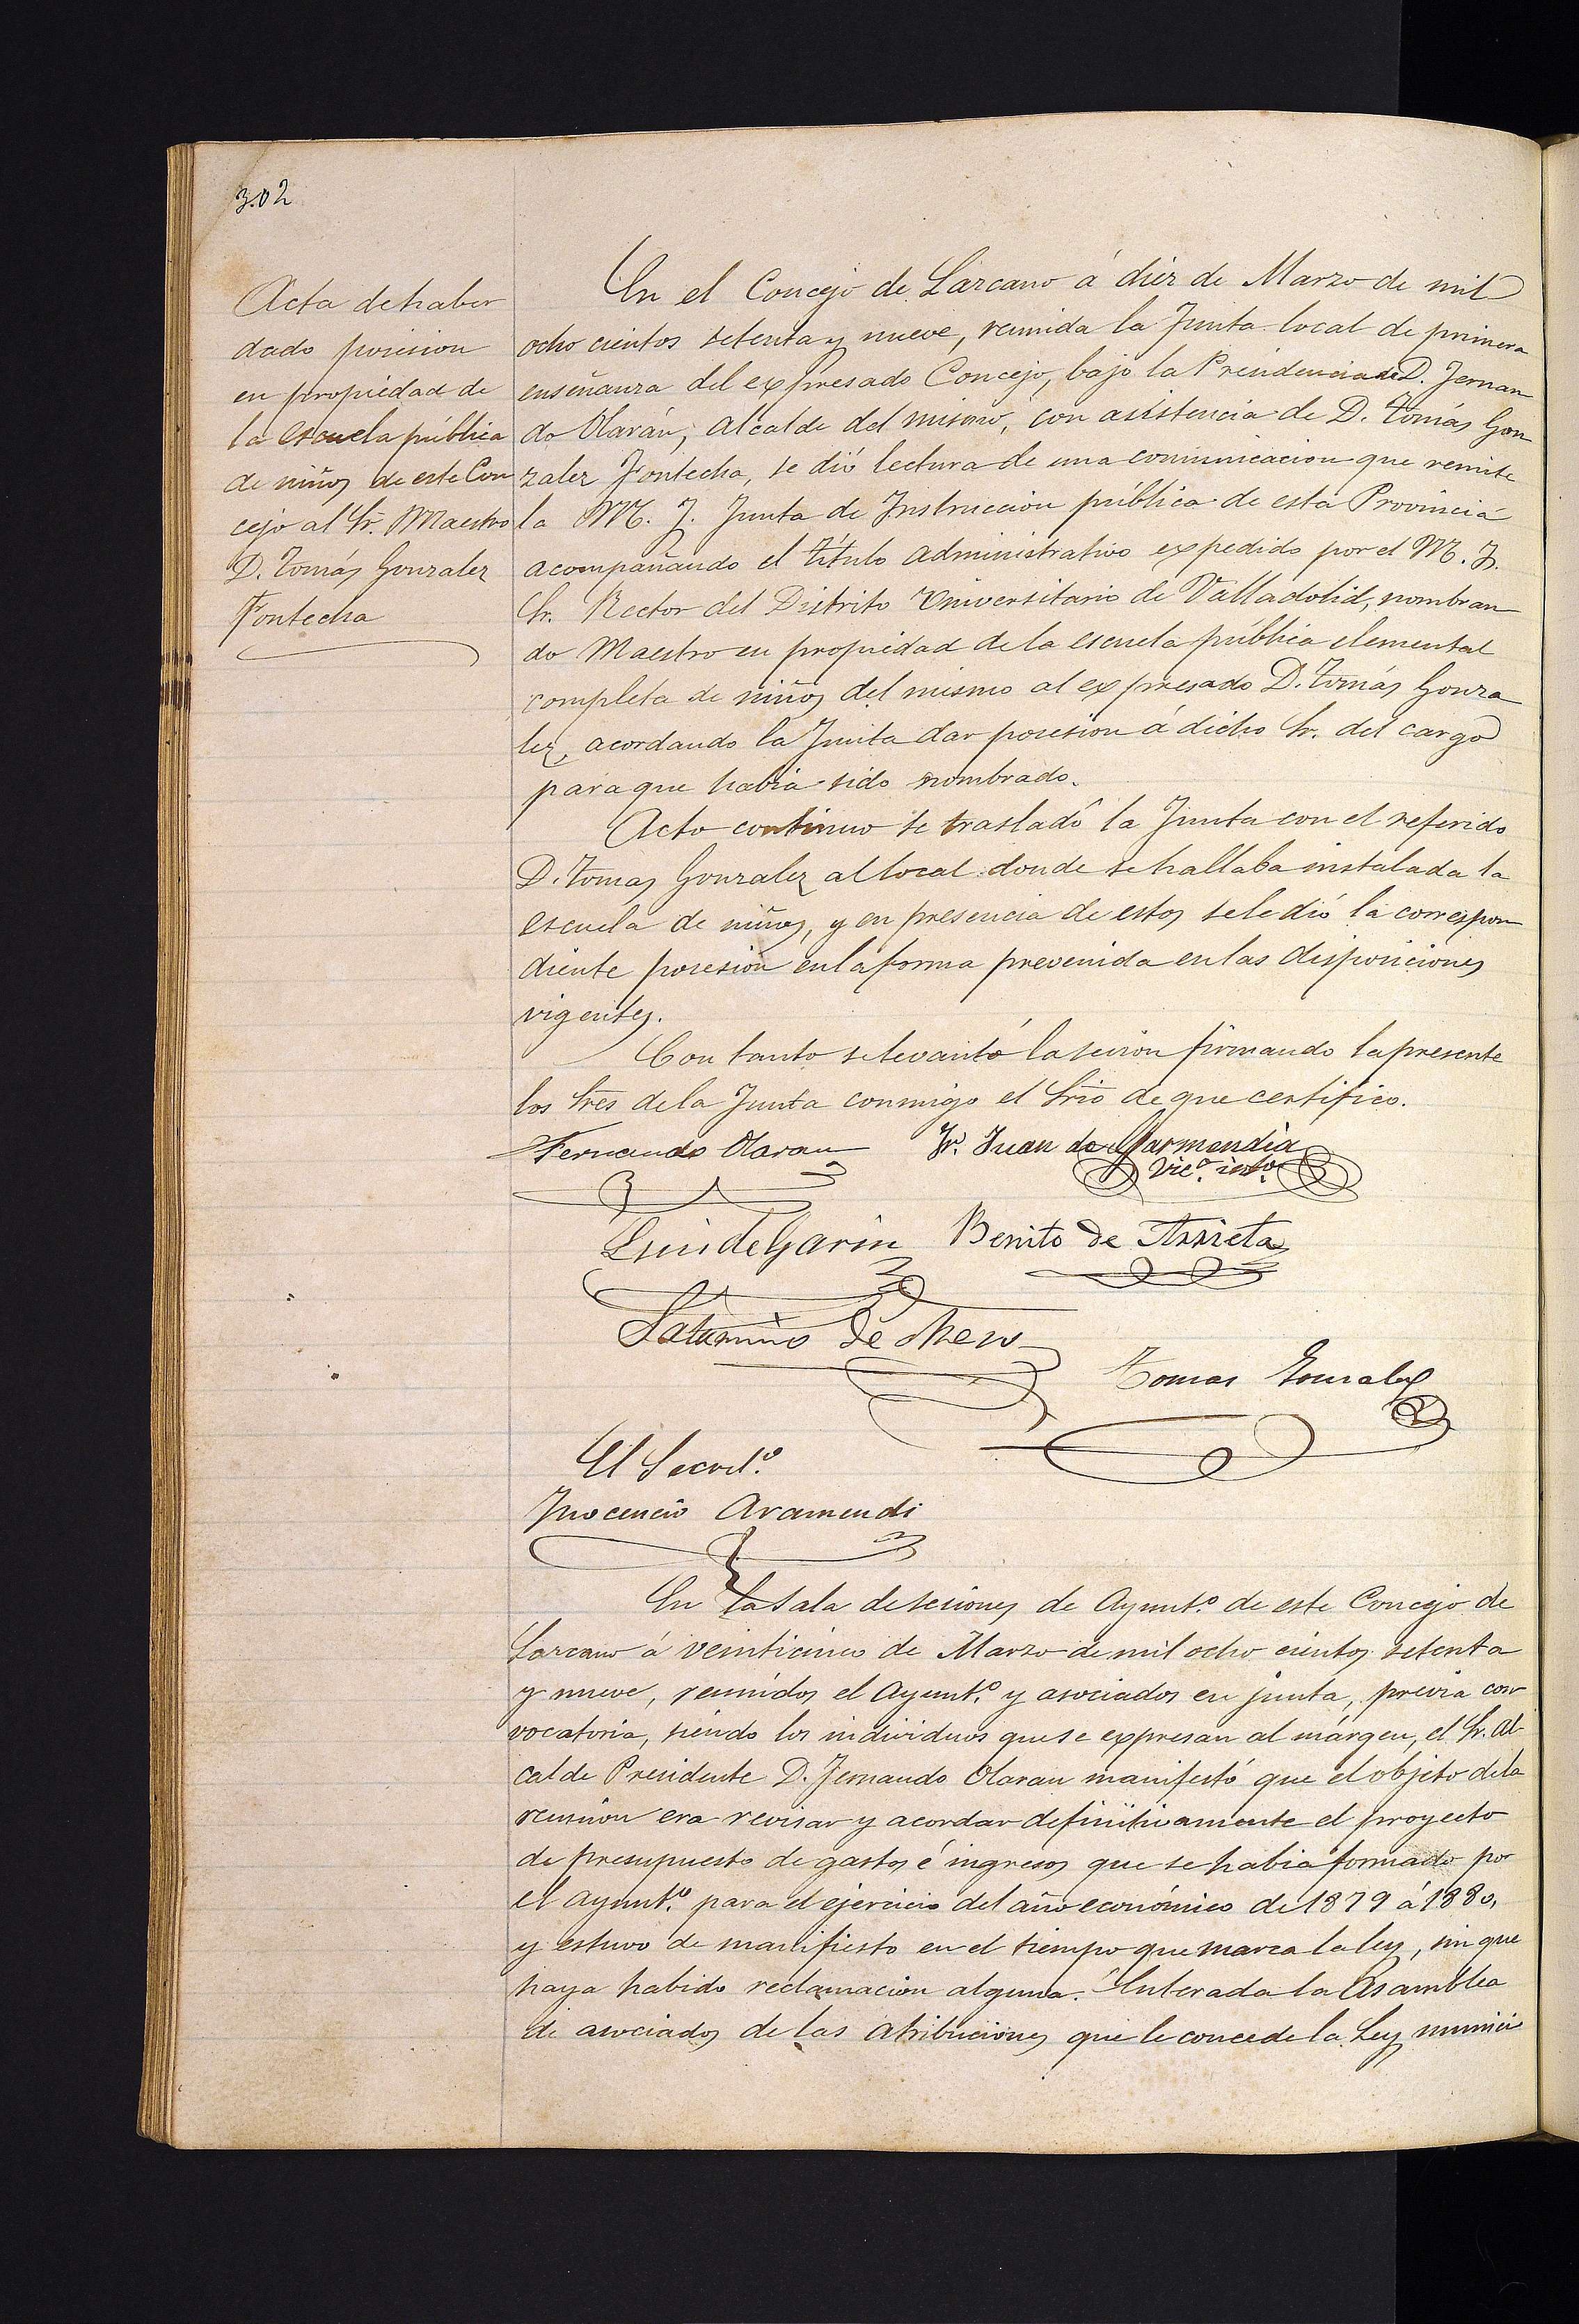 302
Acta de haber
dado posesion
en propiedad de
la escuela pública
de niños de este Con
cejo al Sr. Maestro
D. Tomás Gonzalez
Fontecha
En el Concejo de Lazcano á diez de Marzo de mil
ocho cientos setenta y nueve, reunida la Junta local de primera
enseñanza del expresado Concejo, bajo la Presidencia de D. Fernan
do Olarán, Alcalde del mismo, con asistencia de D. Tomás Gon
zalez Fontecha, se dió lectura de una comunicacion que remite
la M. I. Junta de Instruccion pública de esta Provincia
acompañando el título administrativo expedido por el M. I.
Sr. Rector del Distrito Universitario de Valladolid, nombran
do Maestro en propiedad de la escuela pública elemental
completa de niños del mismo al expresado D. Tomás Gonza
lez, acordando la Junta dar posesion á dicho Sr. del cargo
para que habia sido nombrado.
Acto continuo se trasladó la Junta con el referido
D. Tomas Gonzalez al local donde se hallaba instalada la
escuela de niños, y en presencia de estos se le dió la correspon
diente posesion en la forma prevenida en las disposiciones
vigentes.
Con tanto se levantó la sesion firmando la presente
los Sres de la Junta conmigo el Srio de que certifico.
Fernando Olaran Fr. Juan de Garmendia
Vico. into.
Luis de Garin Benito de Arrieta
Saturnino de
Tomas Gonzalez
El Secret.º
Inocencio Aramendi
En la Sala de sesiones de Ayunt.º de este Concejo de
Lazcano á veinticinco de Marzo de mil ocho cientos setenta
y nueve, reunidos el Ayunt.º y asociados en junta, previa con
vocatoria, siendo los individuos que se expresan al márgen, el Sr. Al
calde Presidente D. Fernando Olaran manifestó que el objeto de la
reunion era revisar y acordar definitivamente el proyecto
de presupuesto de gastos é ingresos que se habia formado por
el Ayunt.º para el ejercicio del año económico de 1879 á 1880,
y estuvo de manifiesto en el tiempo que marca la ley, sin que
haya habido reclamacion alguna. Enterada la Asamblea
de asociados de las atribuciones que le concede la Ley munici